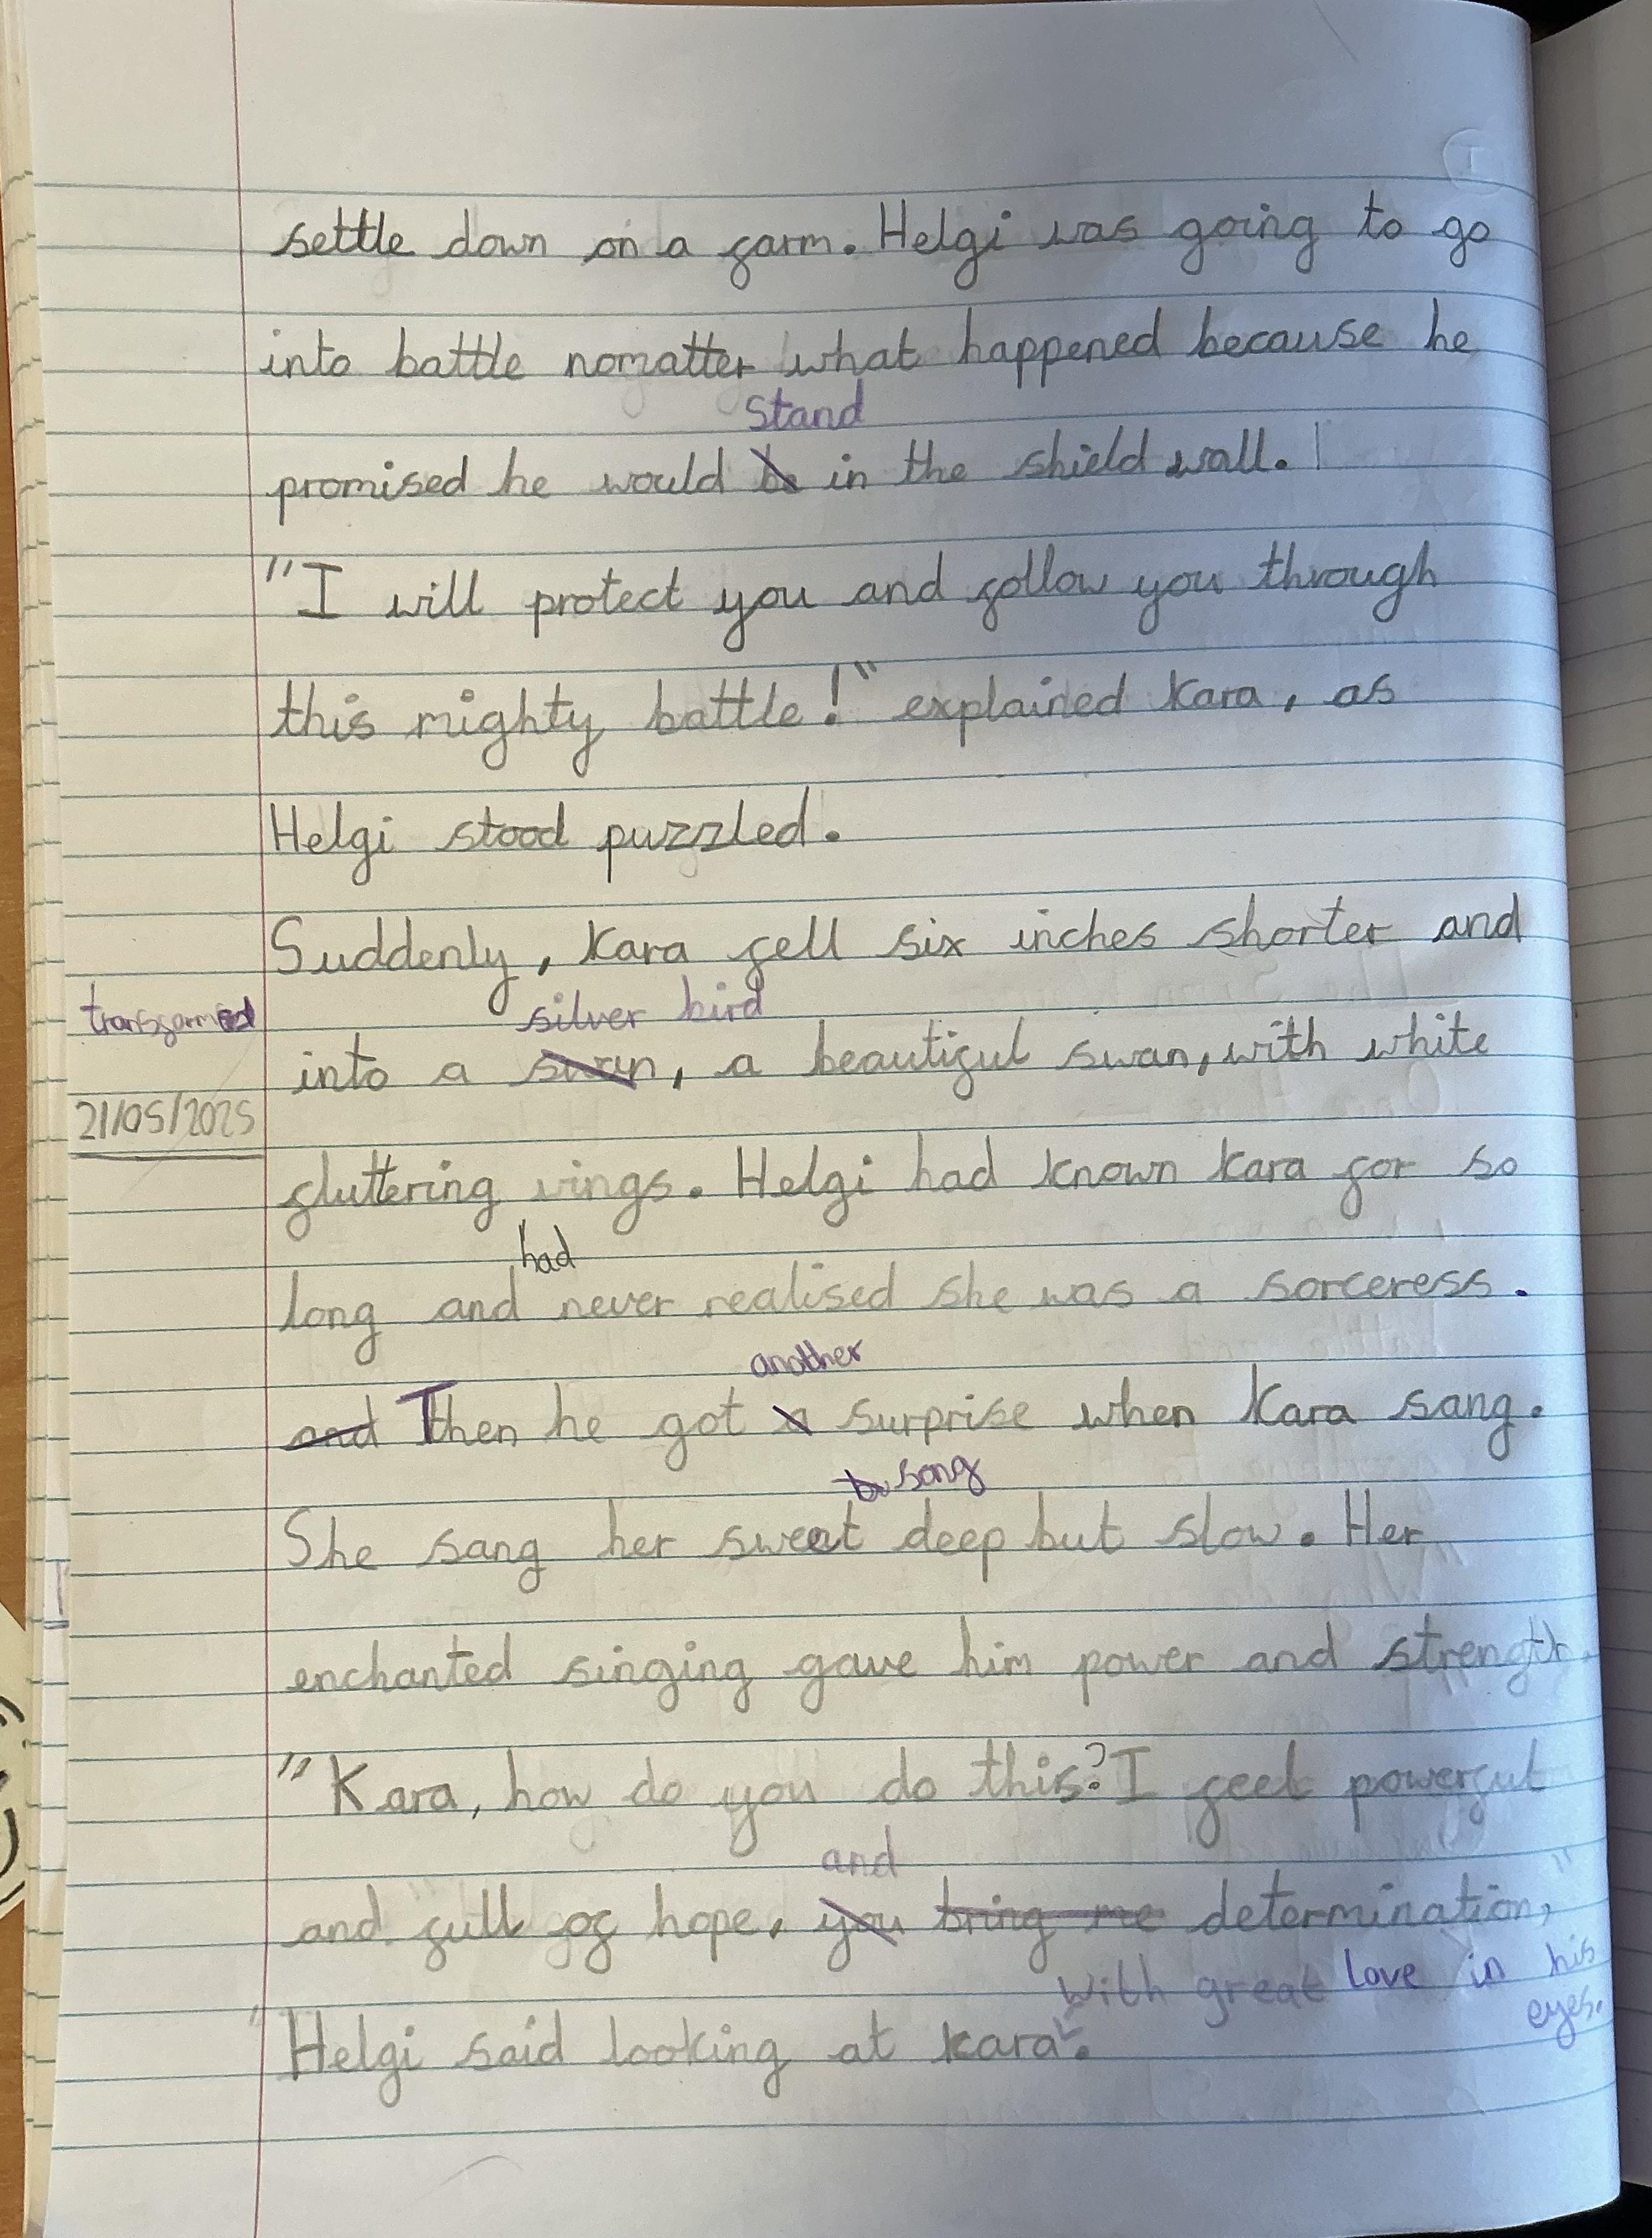 settle down on a farm. Helgi was going to go
into battle nomatter what happened because he
stand
promised he would be in the shield wall.
"I will protect you and follow you through
this mighty battle!" explained Kara, as
Helgi stood puzzled.
Suddenly, Kara fell six inches shorter and
transformed
silver bird
into a swan, a beautiful swan, with white
21/05/2025
gluttering wings. Helgi had known Kara for so
had
long and never realised she was a sorceress.
another
and Then he got a surprise when Kara sang.
song
She sang her sweet deep but slow. Her
enchanted singing gave him power and strength.
"Kara, how do you do this? I feel powerful
and
and full of hope, you bring me determination,"
with great love in his
eyes.
Helgi said looking at Kara.